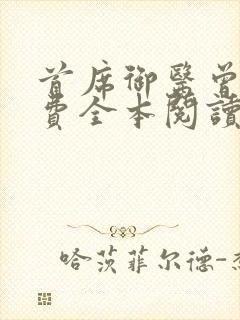 首席御醫曾
費全本閱讀
哈茨菲尔德-杰